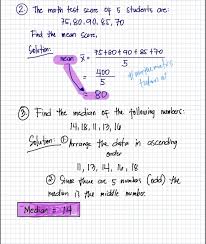 ② The math test score of 5 students are:
75, 80, 90, 85, 70
Find the mean score.
Solution:
mean x̄ = 75+80+90+85+70
5
= 400
5
= 80
③ Find the median of the following numbers
14, 18, 11, 13, 16
Solution: ① Arrange the data in ascending
order
11, 13, 14, 16, 18
② Since there are 5 numbers (odd) the
median is the middle number.
Median = 14